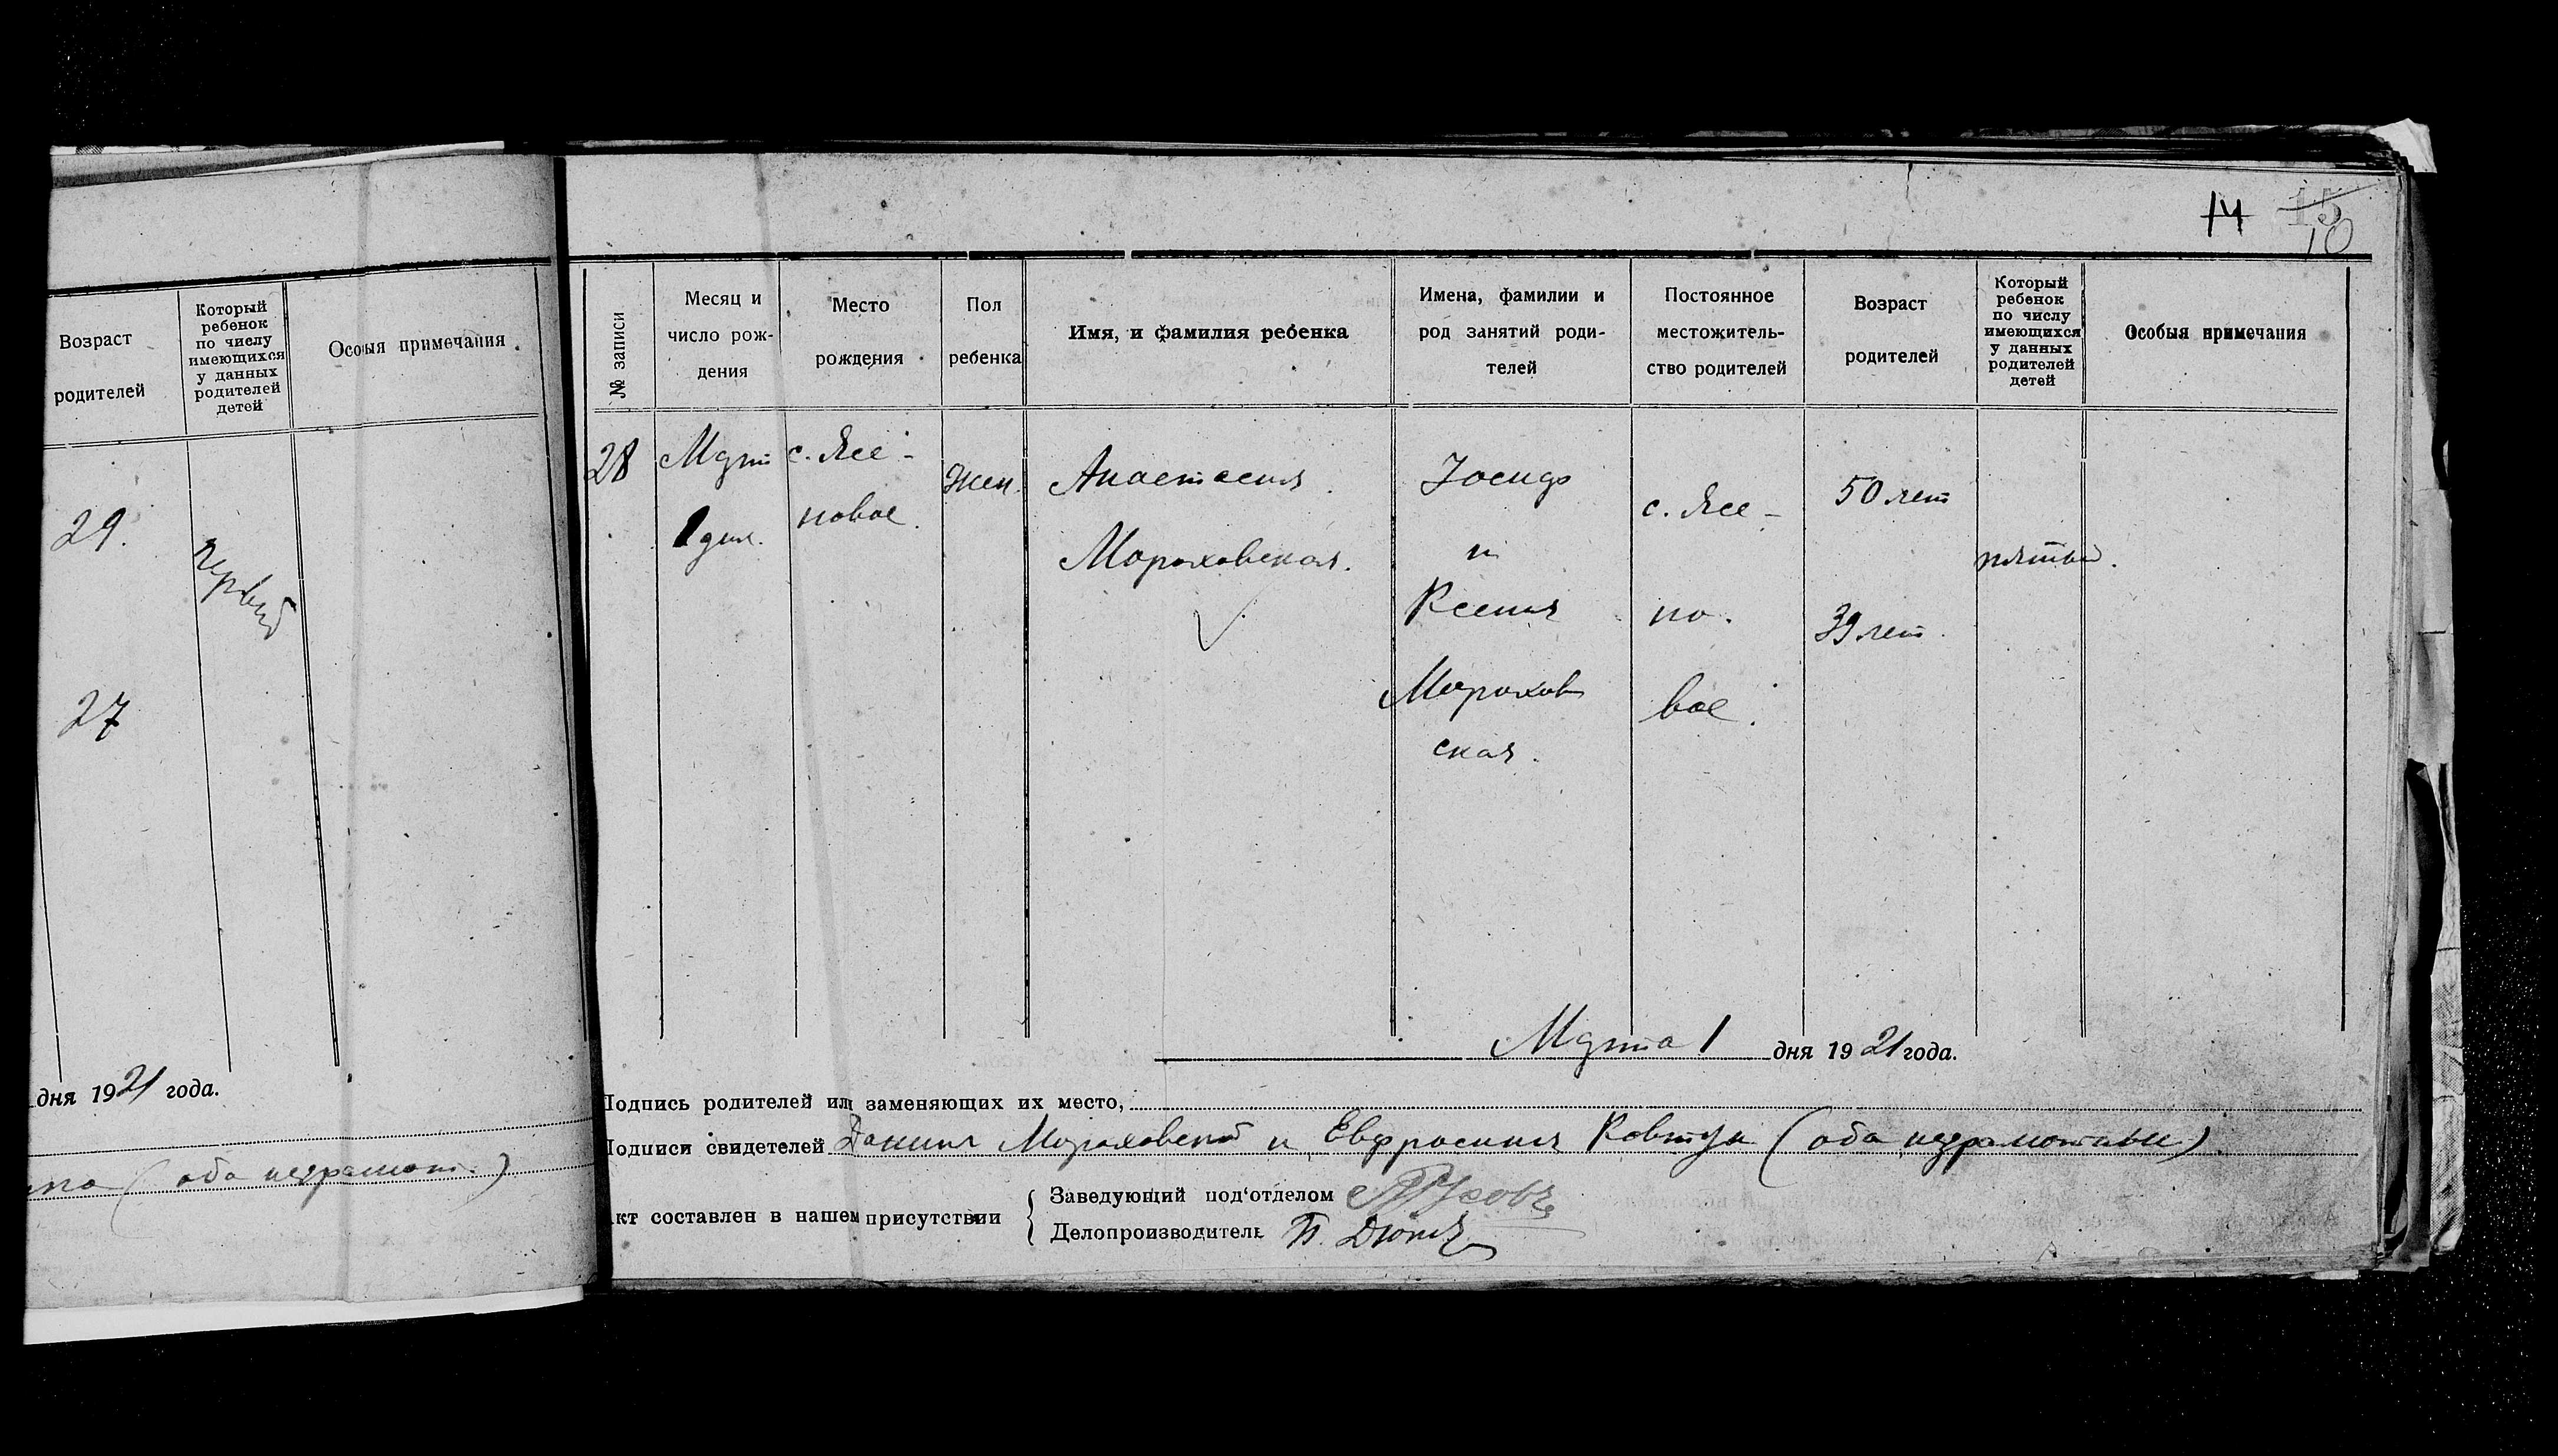 14 15
10
Возраст
родителей
Который
ребенок
по числу
имеющихся
у данных
родителей
детей
Особыя примечания
29.
первый
27
дня 1921 года.
(оба неграмот.)
№ записи
Месяц и
число рож-
дения
Место
рождения
Пол
ребенка
Имя, и фамилия ребенка
Имена, фамилии и
род занятий роди-
телей
Постоянное
местожитель-
ство родителей
Возраст
родителей
Который
ребенок
по числу
имеющихся
у данных
родителей
детей
Особыя примечания
28
Март
1 дня.
с. Ясе-
новое.
Жен.
Анастасия.
Мораховская.
Иосиф
и
Ксения
Морахов
ская.
с. Ясе-
но.
вое.
50 лет
39 лет.
пятый.
Марта 1 дня 1921 года.
Подпись родителей или заменяющих их место,
Подписи свидетелей Даниил Мораховский и Евфросиния Ковтун (оба неграмотные)
Акт составлен в нашем присутствии
Заведующий под'отделом
Делопроизводитель П.